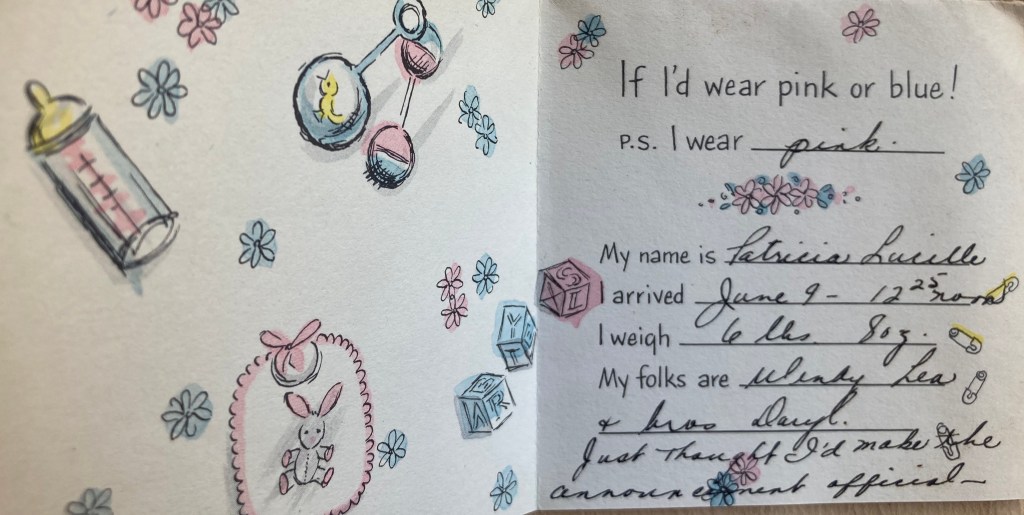 If I'd wear pink or blue!
P.S. I wear pink.
My name is Patricia Lucille
I arrived June 9 - 12 25 noon
I weigh 6 lbs. 8oz.
My folks are Wendy Lea
& bros Daryl.
Just thought I'd make the
announcement official—